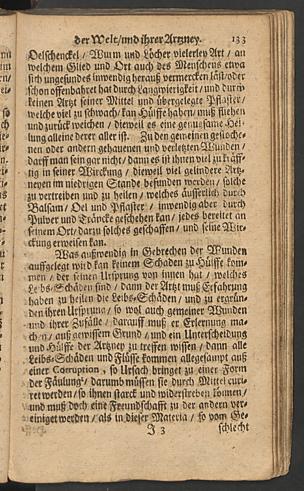 der Welt / und ihrer Artzney. 133
Oelschenckel / Wurm und Löcher vielerley Art / an
welchem Glied und Ort auch des Menschens etwa
sich ungesundes inwendig herauß vermercken läst / oder
schon offenbahret hat durch Langwierigkeit / und durch
keinen Artzt seiner Mittel und übergelegte Pflaster /
welche viel zu schwach / kan Hülffe haben / muß fliehen
und zurück weichen / dieweil es eine genugsame Hei-
lung alleine derer aller ist. Zu den gemeinen gestoche-
nen oder andern gehauenen und verletzten Wunden /
darff man sein gar nicht / dann es ist ihnen viel zu kräff-
tig in seiner Wirckung / dieweil viel gelindere Artz-
neyen im niedrigen Stande befunden werden / solche
zu vertreiben und zu heilen / welches äusserlich durch
Balsam / Oel und Pflaster / inwendig aber durch
Pulver und Träncke geschehen kan / jedes bereitet an
seinem Ort / darzu solches geschaffen / und seine Wir-
ckung erweisen kan.
Was außwendig in Gebrechen der Wunden
auffgelegt wird kan keinem Schaden zu Hülffe kom-
men / der seinen Ursprung von innen hat / welches
Leibs-Schäden sind / dann der Artzt muß Erfahrung
haben zu heilen die Leibs-Schäden / und zu ergrün-
den ihren Ursprung / so wol auch gemeiner Wunden
und ihrer Zufälle / darauff muß er Erlernung ma-
chen / auß gewissem Grund / und ein Unterscheidung
und Hülffe der Artzney zu treffen wissen / dann alle
Leibs-Schäden und Flüsse kommen allegesampt auß
einer Corruption, so Ursach bringet zu einer Form
der Fäulung / darumb müssen sie durch Mittel curi-
ret werden / so ihnen starck und widerstreben können /
und muß doch eine Freundschafft zu der andern ver-
einiget werden / als in dieser Materia / so vom Ge-
J 3 schlecht